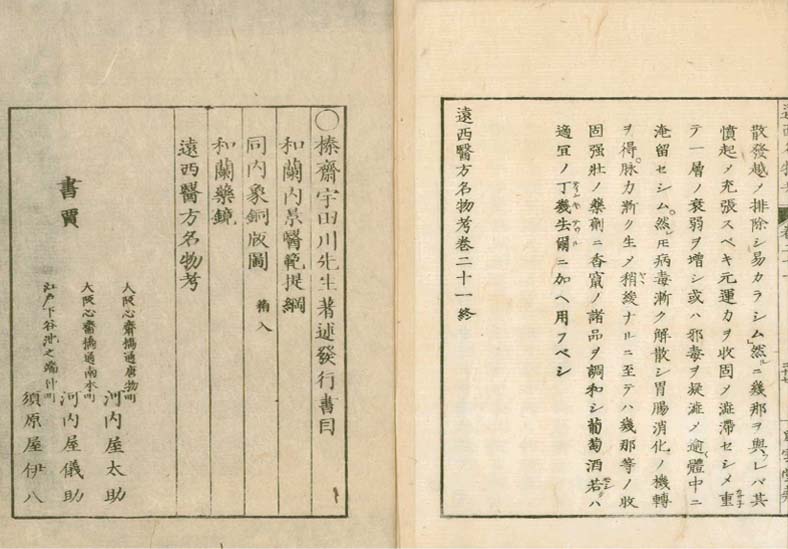 散發越ノ排除シ易カラシム然ルニ幾那ヲ與フレバ其
憤起ノ充張スベキ元運力ヲ收固メ澁滯セシメ重
テ一層ノ衰弱ヲ增シ或ハ邪毒ヲ凝澁メ逾體中ニ
淹留セシム然レ𪜈病毒漸ク解散シ胃腸消化ノ機轉
ヲ得脉力漸ク生メ稍緩ナルニ至テハ幾那等ノ收
固强壯ノ藥劑ニ香竄ノ諸品ヲ調和シ葡萄酒若クハ
適宜ノ丁幾生爾ニ加ヘ用フベシ
遠西醫方名物考卷二十一終
○榛齋宇田川先生著述發行書目
和蘭內景醫範提綱
同內象銅版圖 箱入
和蘭藥鏡
遠西醫方名物考
書賈
大阪心齋橋通唐物町
河內屋太助
大阪心齋橋通南本町
河內屋儀助
江戶下谷池之端仲町
須原屋伊八